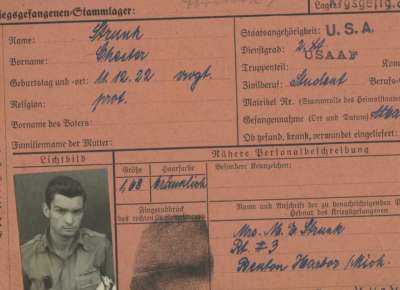 egsgefangenen-Stammlager:
Name: Strunk
Vorname: Chester
Geburtstag und -ort: 11.12.22
Religion: prot.
Vorname des Vaters:
Familienname der Mutter:
Staatsangehörigkeit: U.S.A.
Dienstgrad: 2. Lt.
Truppenteil: USAAF
Zivilberuf: Student Berufs-
Matrikel Nr. (Stammrolle des Heimatstaates
Gefangennahme (Ort und Datum)
Ob gesund, krank, verwundet eingeliefert:
Lichtbild
Nähere Personalbeschreibung
Größe Haarfarbe Besondere Kennzeichen:
1,88 bräunlich
Fingerabdruck
des rechten
Name und Anschrift der zu benachrichtigenden
Heimat des Kriegsgefangenen
Mrs. M. E Strunk
Rt. # 3
Benton Harbor / Mich.